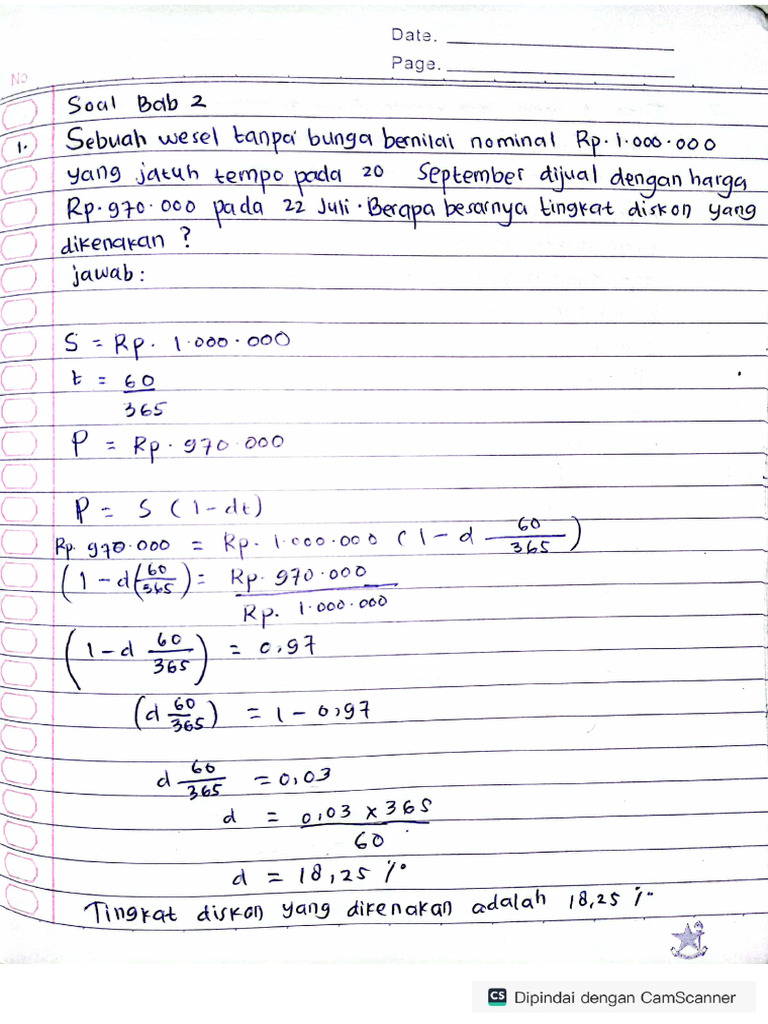 Date.
Page.
No
Soal Bab 2
1. Sebuah wesel tanpa bunga bernilai nominal Rp. 1.000.000
yang jatuh tempo pada 20 September dijual dengan harga
Rp. 970.000 pada 22 Juli. Berapa besarnya tingkat diskon yang
dikenakan ?
jawab :
S = Rp. 1.000.000
t = 60
365
P = Rp. 970.000
P = S (1-dt)
Rp. 970.000 = Rp. 1.000.000 (1-d 60/365)
(1-d(60/365) = Rp. 970.000
Rp. 1.000.000
(1-d 60/365) = 0,97
(d 60/365) = 1-0,97
d 60/365 = 0,03
d = 0,03 x 365
60
d = 18,25 %
Tingkat diskon yang dikenakan adalah 18,25 %
CS Dipindai dengan CamScanner